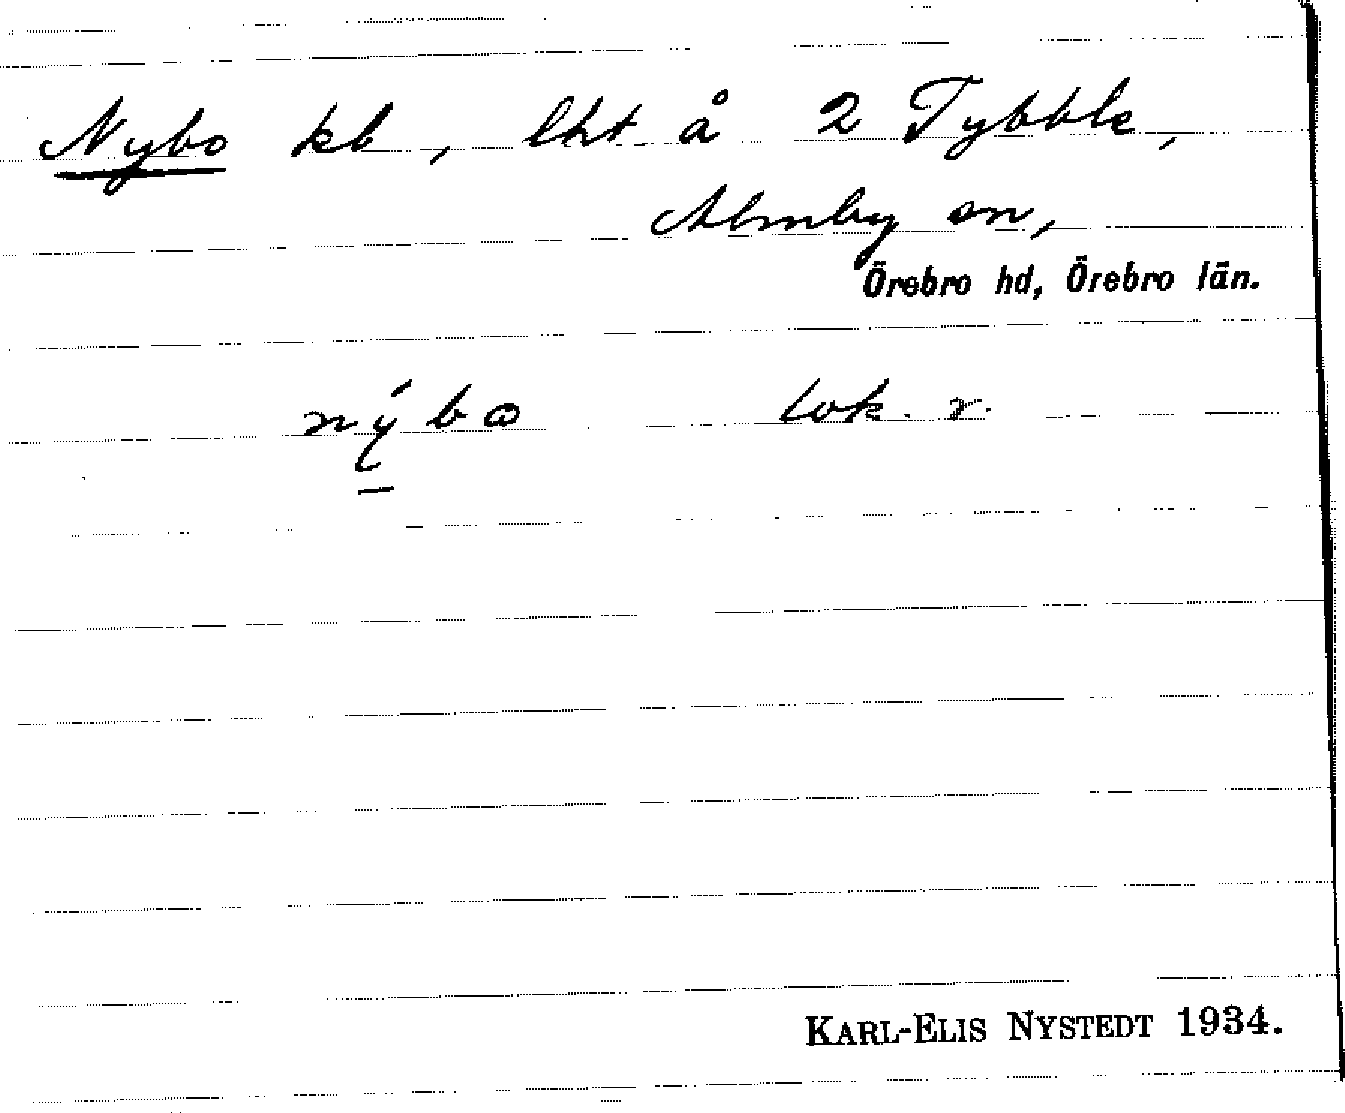 Nybo kb, lht å 2 Tybble,
Almby sn,
Örebro hd, Örebro län.
nýbo lok. r.
KARL-ELIS NYSTEDT 1934.